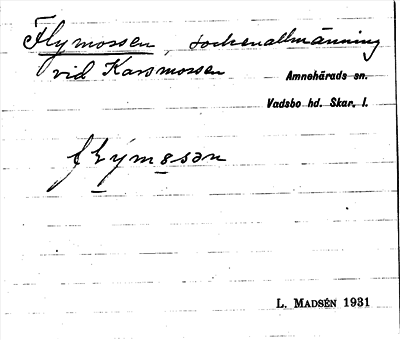 Flymossen, sockenallmänning
vid Kansmossen
Amnehärads sn.
Vadsbo hd. Skar. l.
flýmɵsən
L. MADSÉN 1931